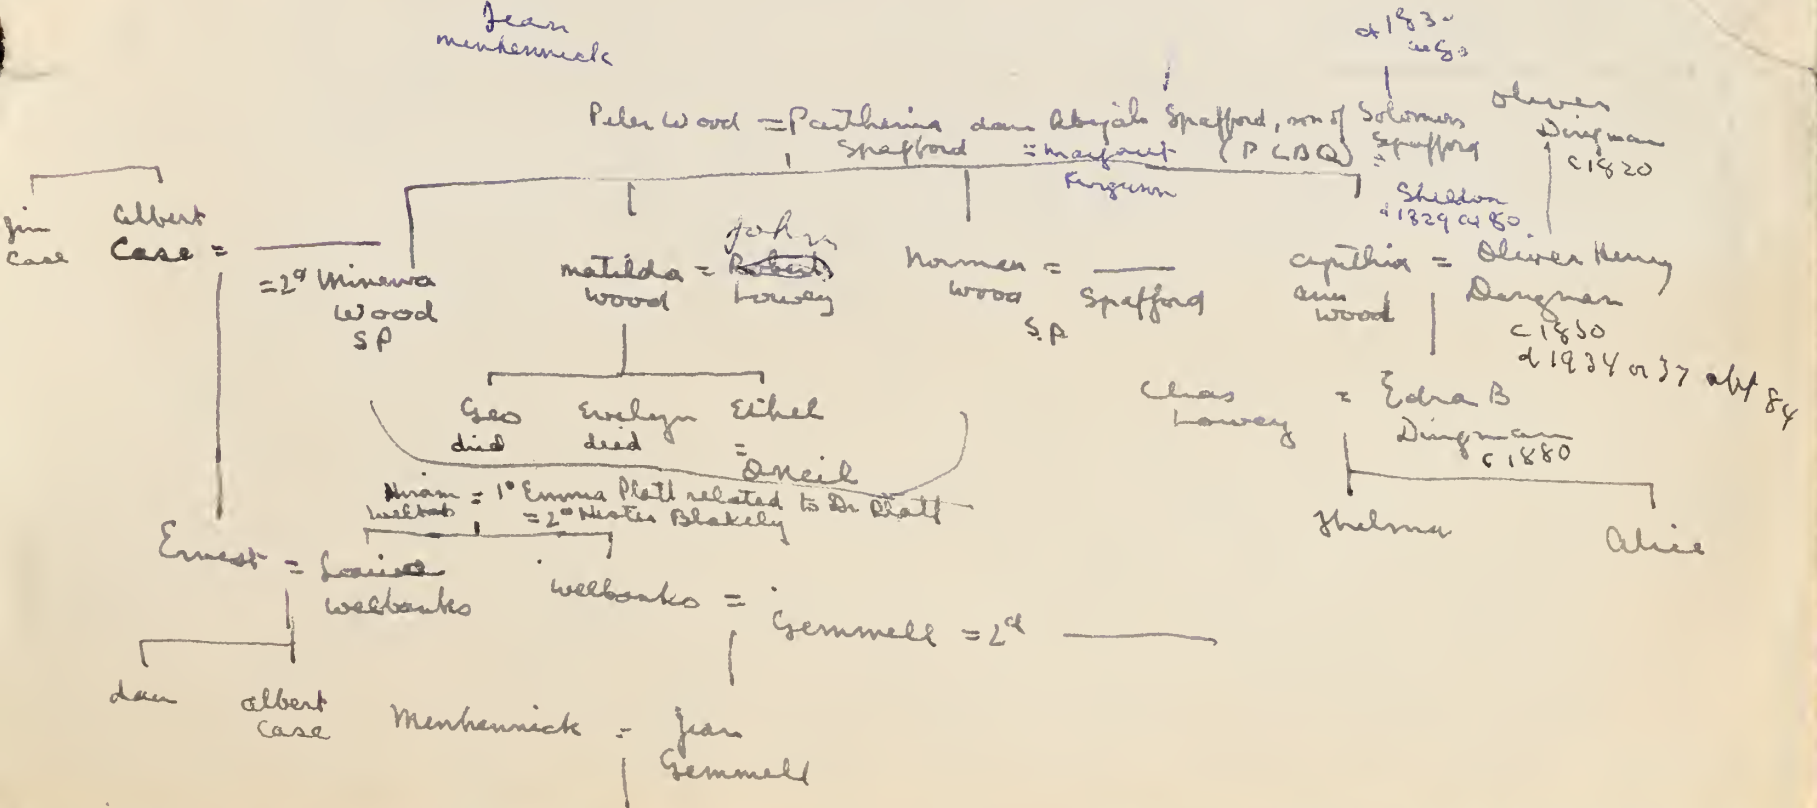 Jean
Menhennick
d 183-
Peter Wood = Parthenia dau Abijah Spafford, son of Solomon
Spafford = Margaret (P C B Q) Spafford =
Ferguson
Sheldon
d 1829 ae 80
Oliver
Dingman
c 1820
Jim
Case
Albert
Case =
= 2d Minerva
Wood
SP
Matilda =
Wood
John
Robert
Lowey
Norman =
Wood
S.P
Spafford
Cynthia =
Ann
Wood
Oliver Henry
Dingman
c 1850
d 1934 or 37 abt 84
Geo
died
Evelyn
died
Ethel
=
Oneil
Chas
Lowey
= Edra B
Dingman
c 1880
Hiram = 1o Emma Platt related to Dr Platt
= 2o Hester Blakely
Thelma
Alice
Ernest = Louise
Welbanks
Welbanks =
Gemmell = 2d
dau
Albert
Case
Menhennick = Jean
Gemmell